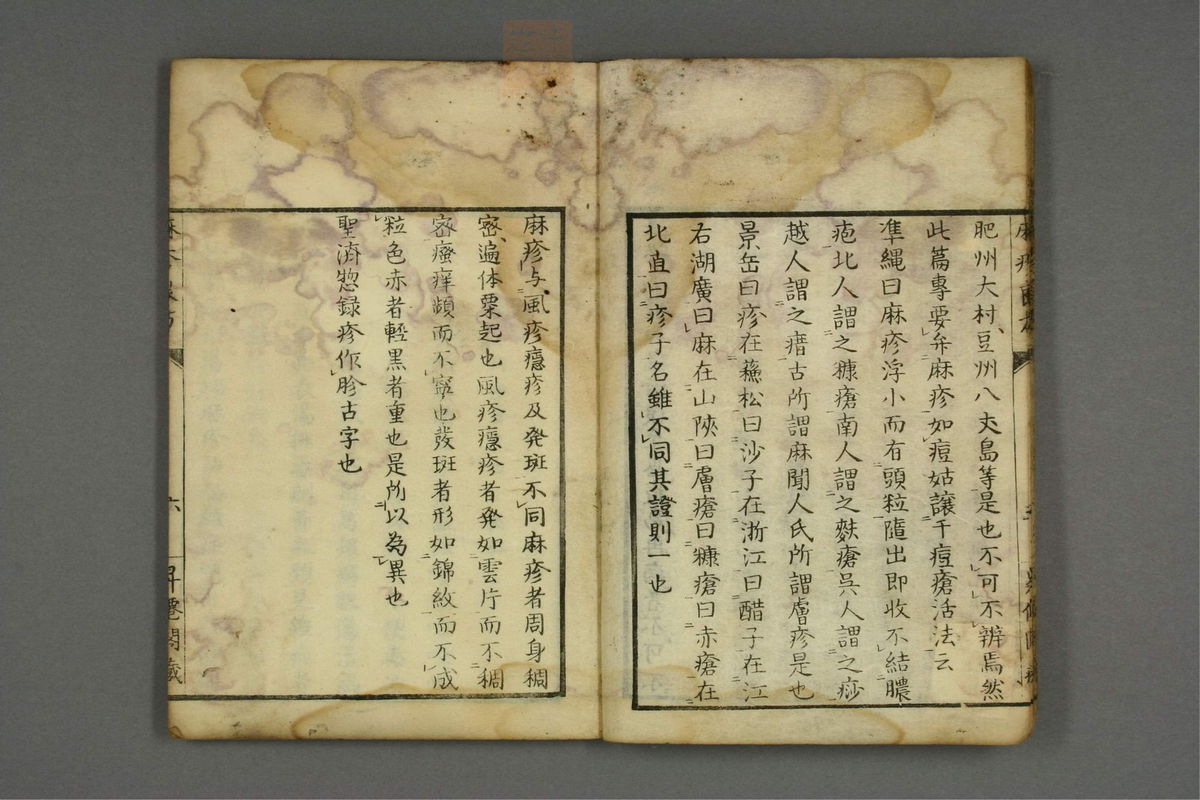 肥州大村豆州八丈島等是也不可不辨焉然
此篇專要弁麻疹如痘姑讓干痘瘡活法云
準繩曰麻疹浮小而有頭粒隨出即收不結膿
疱北人謂之糠瘡南人謂之麩瘡呉人謂之痧
越人謂之㾦古所謂麻聞人氏所謂膚疹是也
景岳曰疹在蘓松曰沙子在浙江曰醋子在江
右湖廣曰麻在山陝曰膚瘡曰糠瘡曰赤瘡在
北直曰疹子名雖不同其證則一也
麻疹与風疹癮疹及発斑不同麻疹者周身稠
密遍体粟起也風疹癮疹者発如雲片而不稠
密瘙痒頻而不寧也發斑者形如錦紋而不成
粒色赤者輕黒者重也是所以為異也
聖済惣録疹作胗古字也
六
昇遷閣蔵